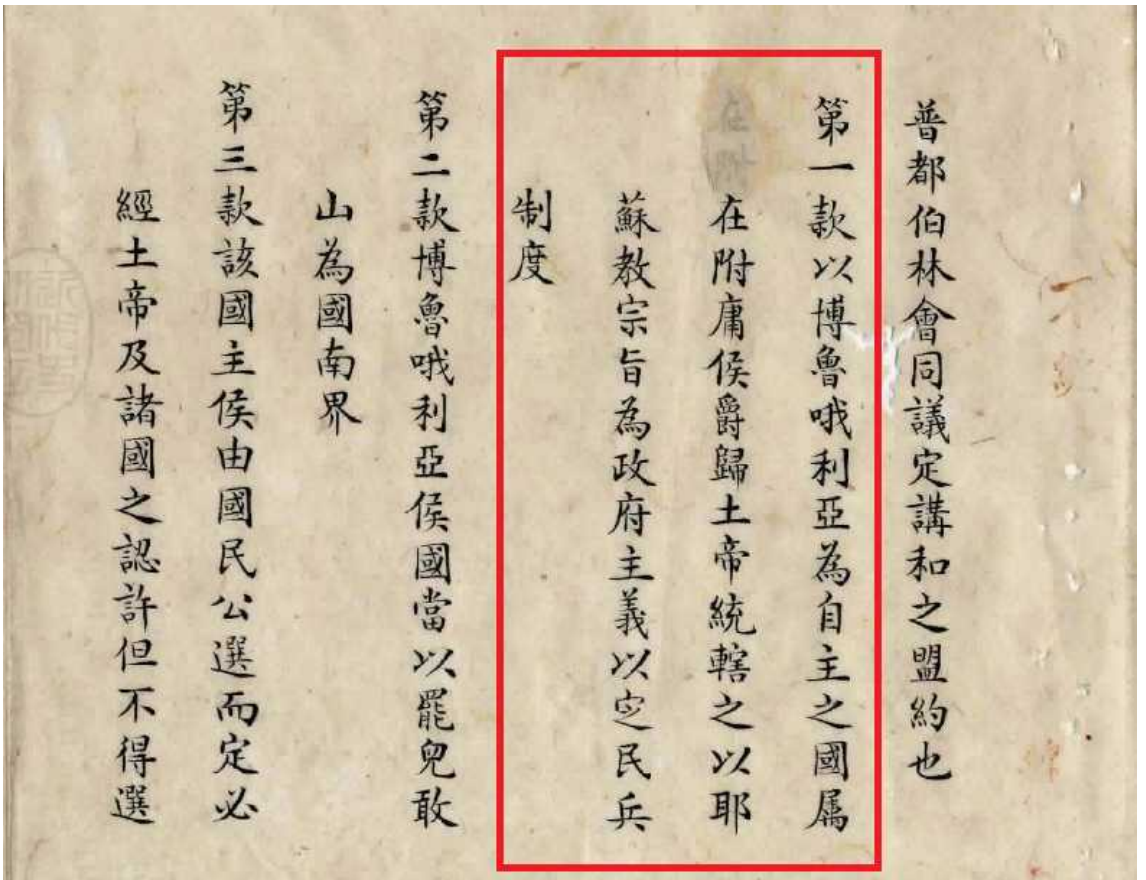 普都伯林會同議定講和之盟約也
第一款以博魯哦利亞為自主之國属
在附庸侯爵歸土帝統轄之以耶
蘇教宗旨為政府主義以㝎民兵
制度
第二款博魯哦利亞侯國當以罷兒敢
山為國南界
第三款該國主侯由國民公選而定必
經土帝及諸國之認許但不得選